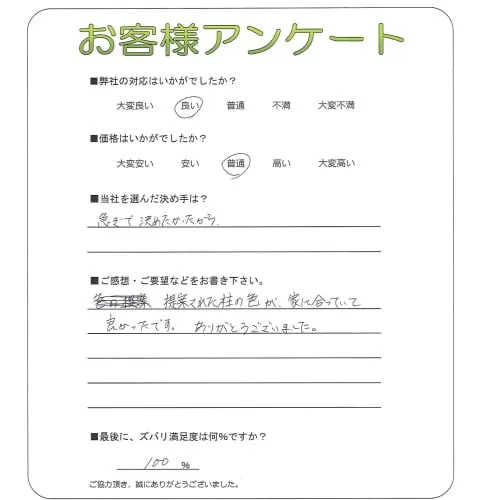 お客様アンケート
■弊社の対応はいかがでしたか？
大変良い 良い 普通 不満 大変不満
■価格はいかがでしたか？
大変安い 安い 普通 高い 大変高い
■当社を選んだ決め手は？
急ぎで決めたかったから。
■ご感想・ご要望などをお書き下さい。
提案された柱の色が、家に合っていて
良かったです。 ありがとうございました。
■最後に、ズバリ満足度は何%ですか？
100 %
ご協力頂き、誠にありがとうございました。